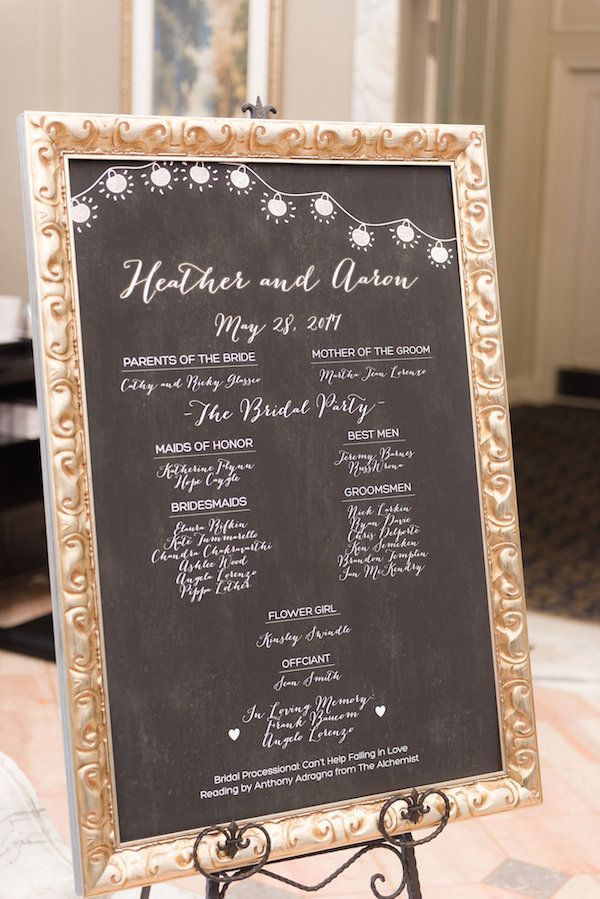 Heather and Aaron
May 28, 2017
PARENTS OF THE BRIDE
Cathy and Ricky Glassco
MOTHER OF THE GROOM
Martha Jean Lorenzo
-The Bridal Party-
MAIDS OF HONOR
Katherine Flynn
Hope Caygle
BEST MEN
Jeremy Barnes
Russ Wrona
BRIDESMAIDS
Elaura Rifkin
Kate Tummarello
Chandra Chakravarthi
Ashlee Wood
Angela Lorenzo
Pippa Lother
GROOMSMEN
Nick Larkin
Ryan Davie
Chris Delporte
Ken Semeken
Brandon Templin
Ian McKendry
FLOWER GIRL
Kinsley Swindle
OFFCIANT
Sean Smith
In Loving Memory:
Frank Baucom
Angelo Lorenzo
Bridal Processional: Can't Help Falling in Love
Reading by Anthony Adragna from The Alchemist